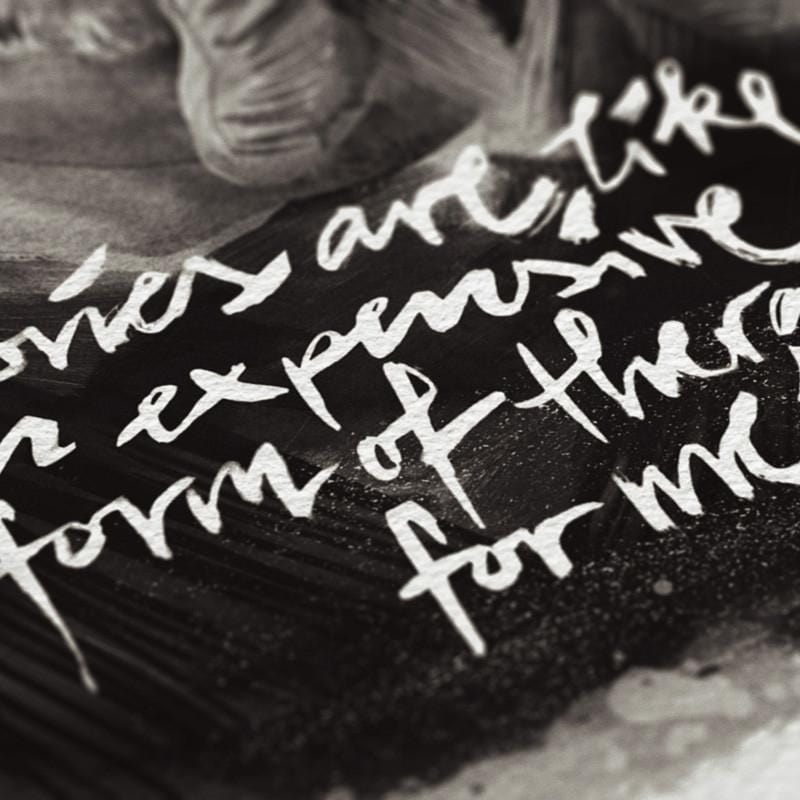 ovies are like
n expensive
form of thera
for me